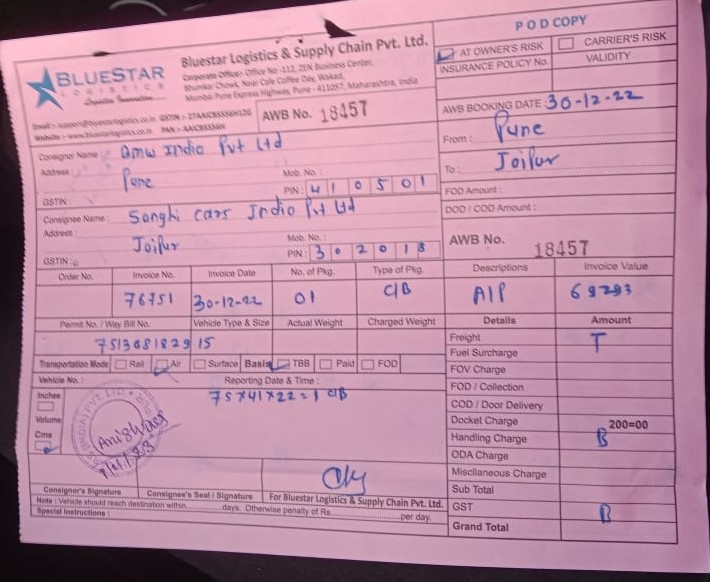 POD COPY
BLUESTAR
LOGISTICS
Bluestar Logistics & Supply Chain Pvt. Ltd.
Corporate Office:- Office No -112, ZEN Business Center,
Bhumkar Chowk, Near Cafe Coffee Day, Wakad,
Mumbai Pune Express Highway, Pune - 411057, Maharashtra, India
AT OWNER'S RISK CARRIER'S RISK
INSURANCE POLICY No. VALIDITY
AWB No. 18457
AWB BOOKING DATE 30-12-22
From : Pune
To : Jaipur
FOD Amount :
DOD / COD Amount :
AWB No. 18457
Consignor Name : Bmw India Pvt Ltd
Address : Pune
Mob. No. :
PIN : 410501
GSTIN :
Consignee Name : Sanghi cars India Pvt Ltd
Address : Jaipur
Mob. No. :
PIN : 302013
GSTIN :
Order No. Invoice No. Invoice Date No. of Pkg. Type of Pkg. Descriptions Invoice Value
76751 30-12-22 01 C/B A/P 69293
Permit No. / Way Bill No. Vehicle Type & Size Actual Weight Charged Weight Details Amount
751368182915
Freight T
Fuel Surcharge
Transportation Mode Rail Air Surface Basis TBB Paid FOD
FOV Charge
Vehicle No. : Reporting Date & Time :
FOD / Collection
Inches
75x41x22=1 C/B
COD / Door Delivery
Docket Charge 200=00
Volume
Handling Charge B
Cms
ODA Charge
Miscllaneous Charge
Sub Total
GST B
Grand Total
Consignor's Signature Consignee's Seal / Signature For Bluestar Logistics & Supply Chain Pvt. Ltd.
Note : Vehicle should reach destination within days. Otherwise penalty of Rs. per day.
Special Instructions :